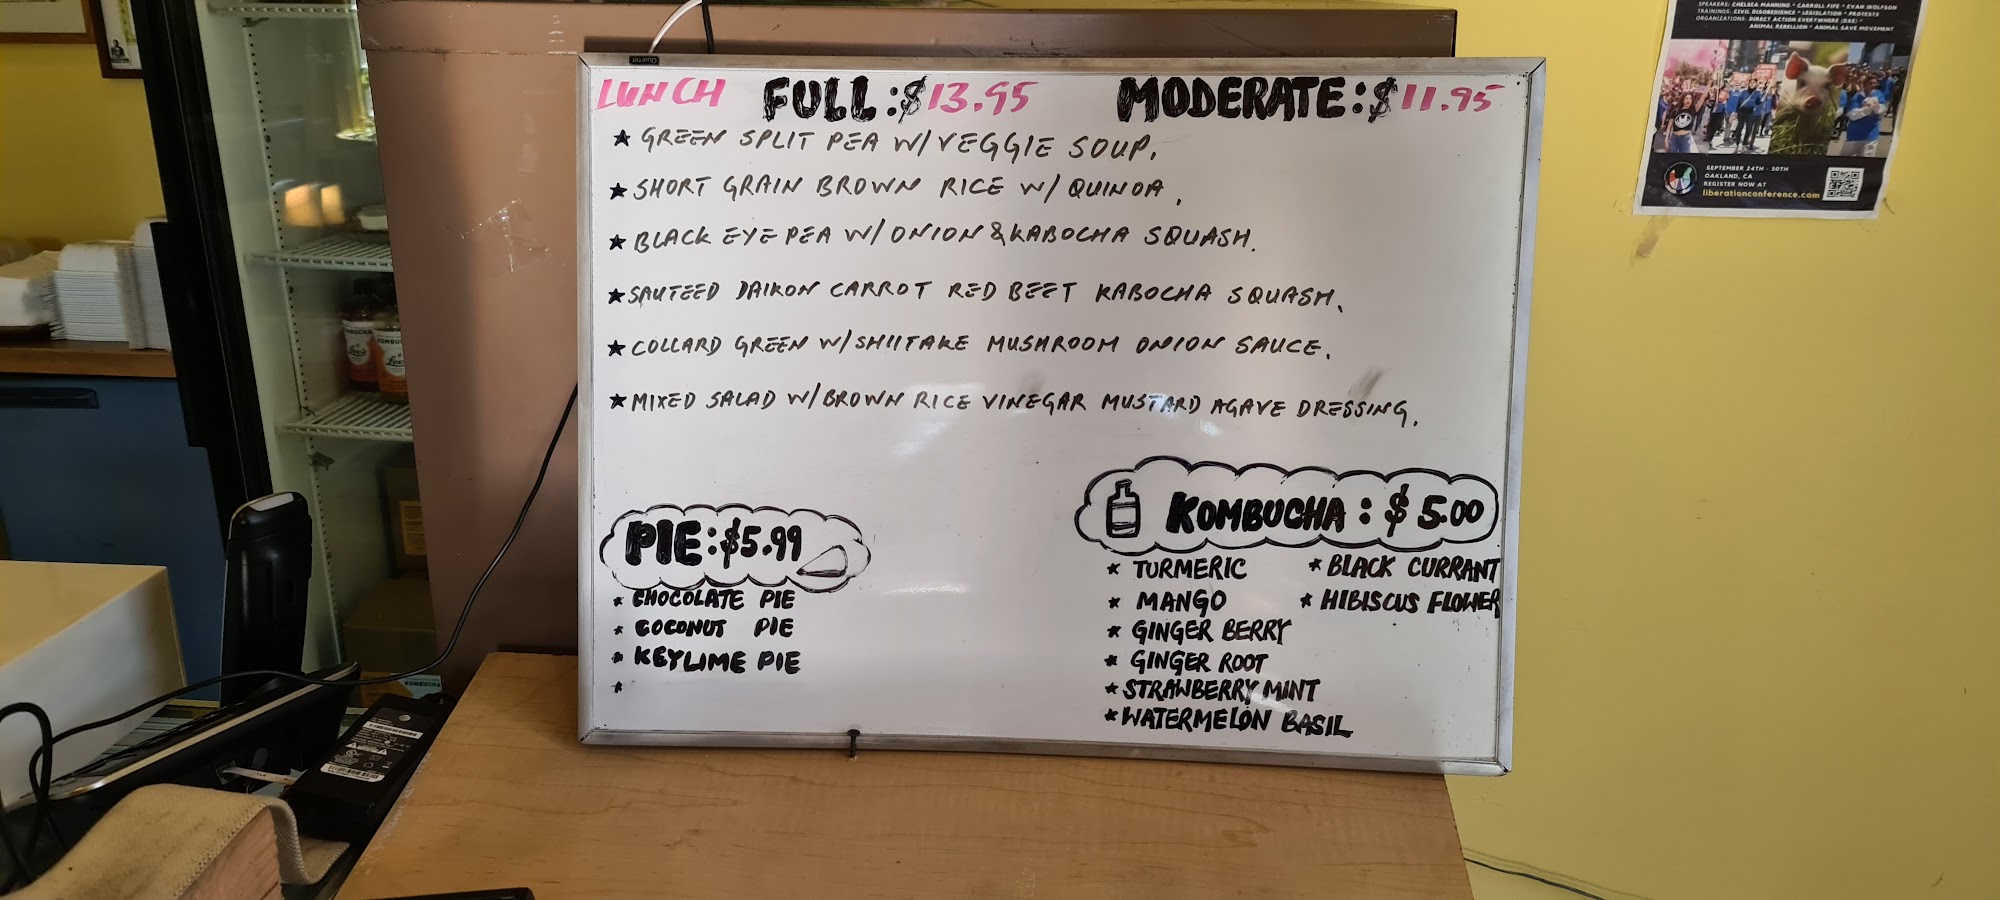 SPEAKERS: CHELSEA MANNING * CARROLL FIFE * EVAN WOLFSON
TRAININGS: CIVIL DISOBEDIENCE * LEGISLATION * PROTESTS
ORGANIZATIONS: DIRECT ACTION EVERYWHERE (DXE) *
ANIMAL REBELLION * ANIMAL SAVE MOVEMENT
SEPTEMBER 24TH - 30TH
OAKLAND, CA
REGISTER NOW AT
liberationconference.com
Quartet
LUNCH FULL:$13.95 MODERATE:$11.95
★ GREEN SPLIT PEA W/VEGGIE SOUP.
★ SHORT GRAIN BROWN RICE W/ QUINOA.
★ BLACK EYE PEA W/ONION & KABOCHA SQUASH.
★ SAUTEED DAIKON CARROT RED BEET KABOCHA SQUASH.
★ COLLARD GREEN W/SHIITAKE MUSHROOM ONION SAUCE.
★ MIXED SALAD W/BROWN RICE VINEGAR MUSTARD AGAVE DRESSING.
PIE:$5.99
* CHOCOLATE PIE
* COCONUT PIE
* KEYLIME PIE
*
KOMBUCHA: $5.00
* TURMERIC * BLACK CURRANT
* MANGO * HIBISCUS FLOWER
* GINGER BERRY
* GINGER ROOT
* STRAWBERRY MINT
* WATERMELON BASIL
KOMBUCHA